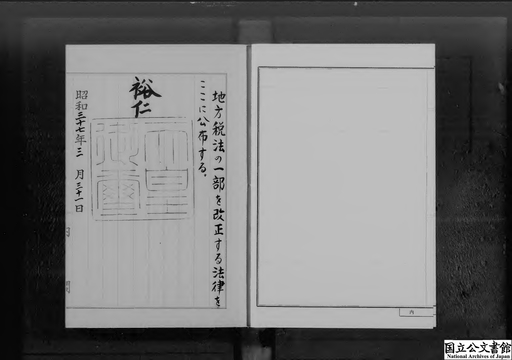 地方税法の一部を改正する法律を
ここに公布する。
裕仁
天皇
御璽
昭和三十七年三月三十一日
内
国立公文書館
National Archives of Japan